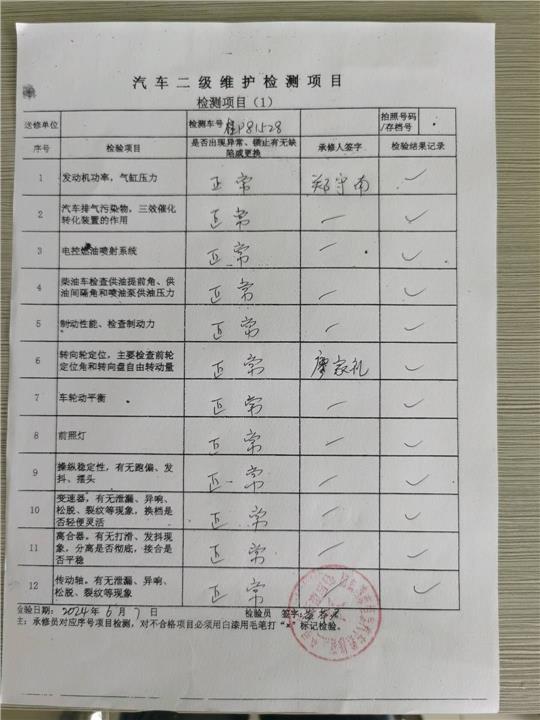 汽车二级维护检测项目
检测项目（1）
送修单位 检测车号 桂P81528 拍照号码/存档号
序号 检验项目 是否出现异常、锁止有无缺陷或更换 承修人签字 检验结果记录
1 发动机功率，气缸压力 正常 郑宇南 ✓
2 汽车排气污染物，三效催化转化装置的作用 正常 一 ✓
3 电控燃油喷射系统 正常 一 ✓
4 柴油车检查供油提前角、供油间隔角和喷油泵供油压力 正常 一 ✓
5 制动性能、检查制动力 正常 一 ✓
6 转向轮定位，主要检查前轮定位角和转向盘自由转动量 正常 廖家礼 ✓
7 车轮动平衡 正常 一 ✓
8 前照灯 正常 一 ✓
9 操纵稳定性，有无跑偏、发抖、摆头 正常 一 ✓
10 变速器，有无泄漏、异响、松脱、裂纹等现象，换档是否轻便灵活 正常 一 ✓
11 离合器，有无打滑、发抖现象，分离是否彻底，接合是否平稳 正常 一 ✓
12 传动轴，有无泄漏、异响、松脱、裂纹等现象 正常 一 ✓
检验日期：2024年6月7日 检验员 签字：
主：承修员对应序号项目检测，对不合格项目必须用白漆用毛笔打“×”标记检验。